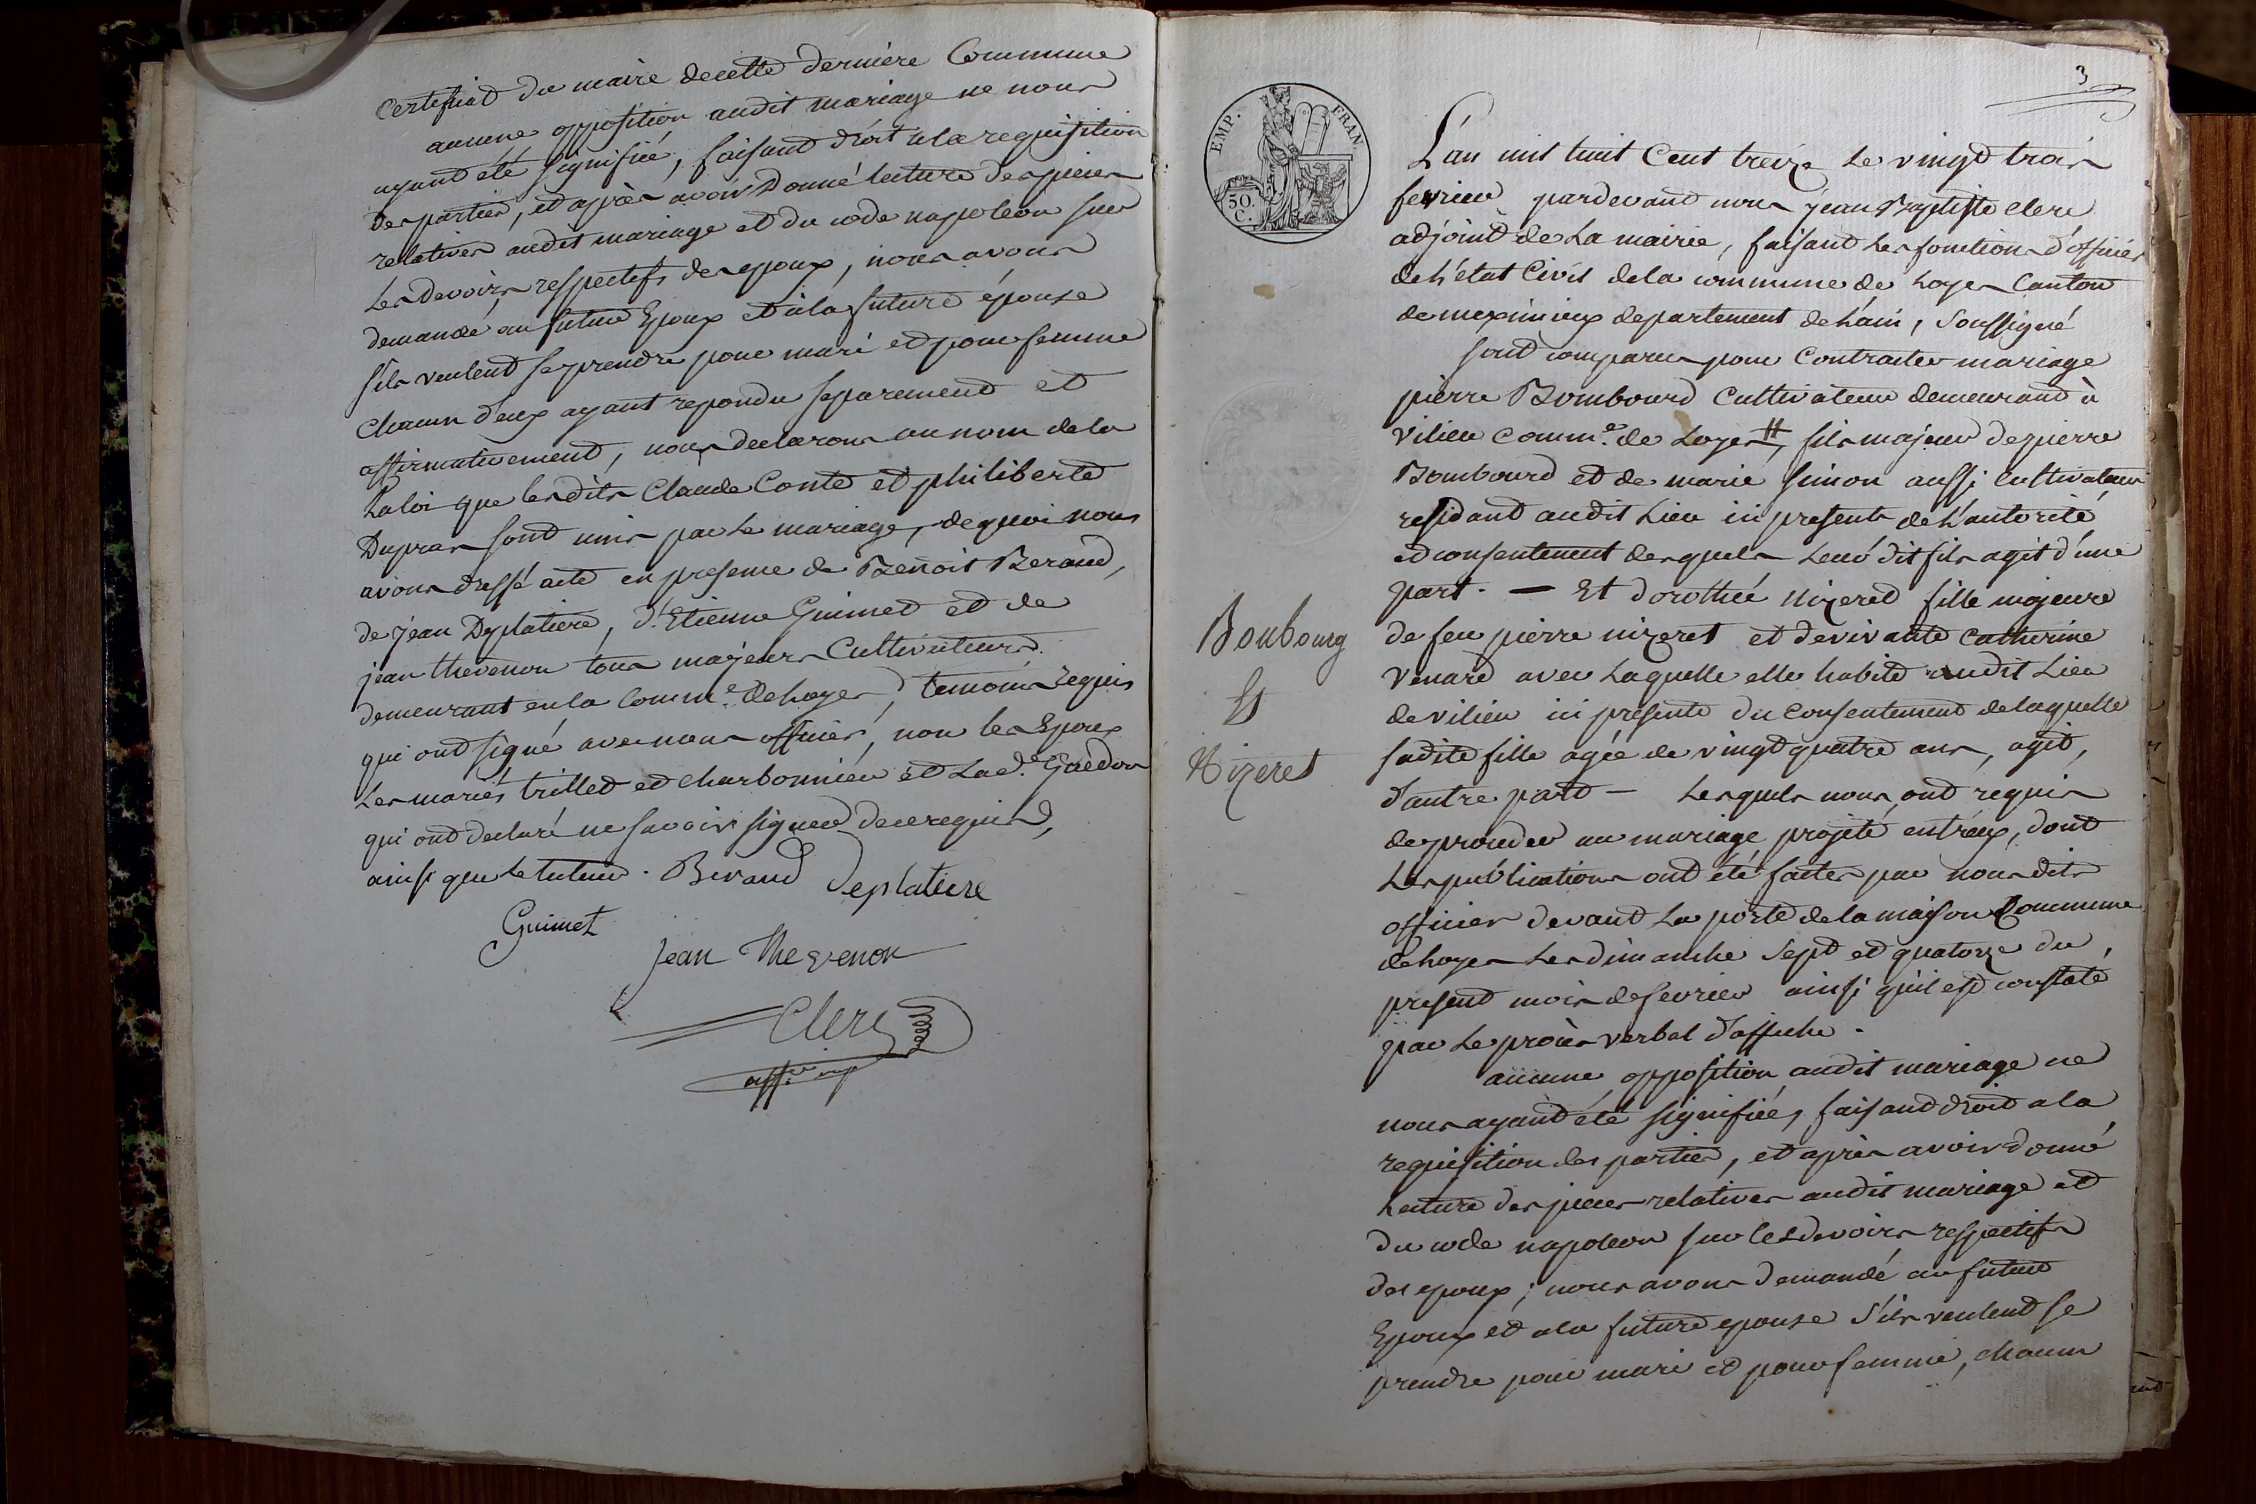 certificat du maire de cette dernière Commune
aucune opposition audit mariage ne nous
ayant été signifiée, faisant droit a la requisition
des parties, et après avoir donné lecture des pieces
relatives audit mariage et du code napoleon sur
les devoirs respectifs des epoux, nous avons
demandé au futur Epoux et à la future épouse
s'ils veulent se prendre pour mari et pour femme
chacun d'eux ayant repondu separement et
affirmativement, nous declarons au nom de la
La loi que lesdits Claude Conte et philiberte
Dupras sont unis par le mariage, de quoi nous
avons dressé acte en presence de Benoit Beraud,
de jean Deplatiere, d'Etienne Guimet et de
jean thevenon tous majeurs Cultivateurs
demeurant en la Comm.e de Loyes, temoins requis
qui ont signé avec nous officier, non les Epoux
les mariés trillet et charbonnieu et la d.e
qui ont declaré ne savoir signer de ce requis,
ainsi que le tuteur. Beraud Deplatiere
Guimet
jean Thevenon
Clerc
3
EMP. FRAN.
50. C.
L'an mil huit Cent treize le vingt trois
fevrier pardevant nous jean Baptiste clerc
adjoint de la mairie, faisant les fonctions d'officier
de l'état Civil de la commune de Loyes Canton
de meximieux departement de l'ain, soussigné
sont comparus pour Contracter mariage
pierre Bombourd Cultivateur demeurant à
vilieu comm.e de Loyes #, fils majeur de pierre
Bombourd et de marie simon aussi cultivateurs
residant audit Lieu ici presents de L'autorité
et consentement desquels leur dit fils agit d'une
part. — Et dorothée nizeret fille majeure
de feu pierre nizeret et de vivante catherine
venard avec Laquelle elle habite audit Lieu
de vilieu ici presente du consentement de laquelle
sadite fille agée de vingt quatre ans, agit,
d'autre part — Lesquels nous ont requis
de proceder au mariage projeté entr'eux, dont
Les publications ont été faites par nous dit
officier devant La porte de la maison Commune
de Loyes Les dimanche sept et quatorze du
present mois de fevrier ainsi qu'il est constaté
par Le procès verbal d'affiche.
aucune opposition audit mariage ne
nous ayant été signifiée, faisant droit a la
requisition des parties, et après avoir donné
Lecture des pieces relatives audit mariage et
du code napoleon sur les devoirs respectifs
des epoux; nous avons demandé au futur
Epoux et a la future epouse s'ils veulent se
prendre pour mari et pour femme, chacun
Boubourg
Et
Nizeret